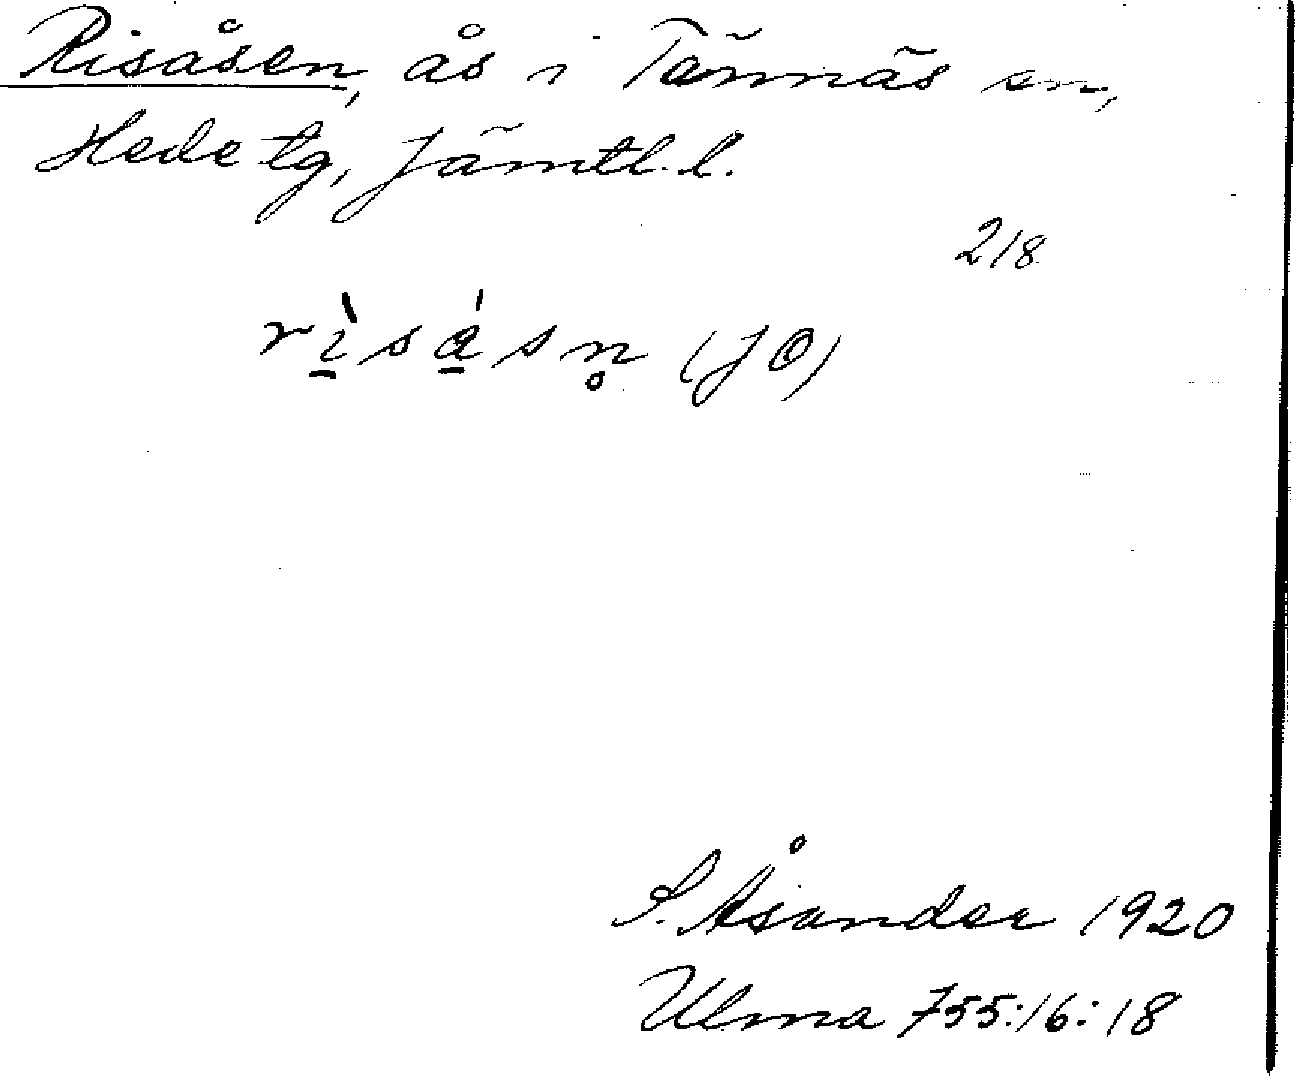 Risåsen, ås i Tännäs sn,
Hede tg, Jämtl. l.
218
rı̲̀sá̲sn̥ (JO)
S. Åsander 1920
Ulma 755:16:18